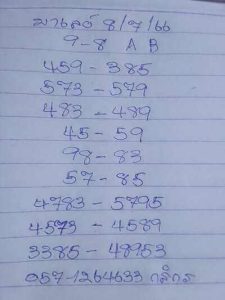 มาเลย์ 8/7/66
9-8 A B
459-385
573-579
483-489
45-59
98-83
57-85
4783-5795
4573-4589
3385-48953
057-1264633